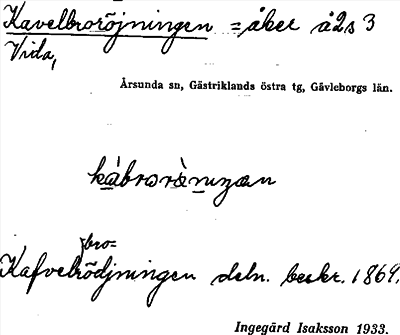 Kavelbroröjningen = åker å2s3
Vida,
Årsunda sn, Gästriklands östra tg, Gävleborgs län.
bro=
Kafvelrödjningen deln. beskr. 1869.
Ingegärd Isaksson 1933.